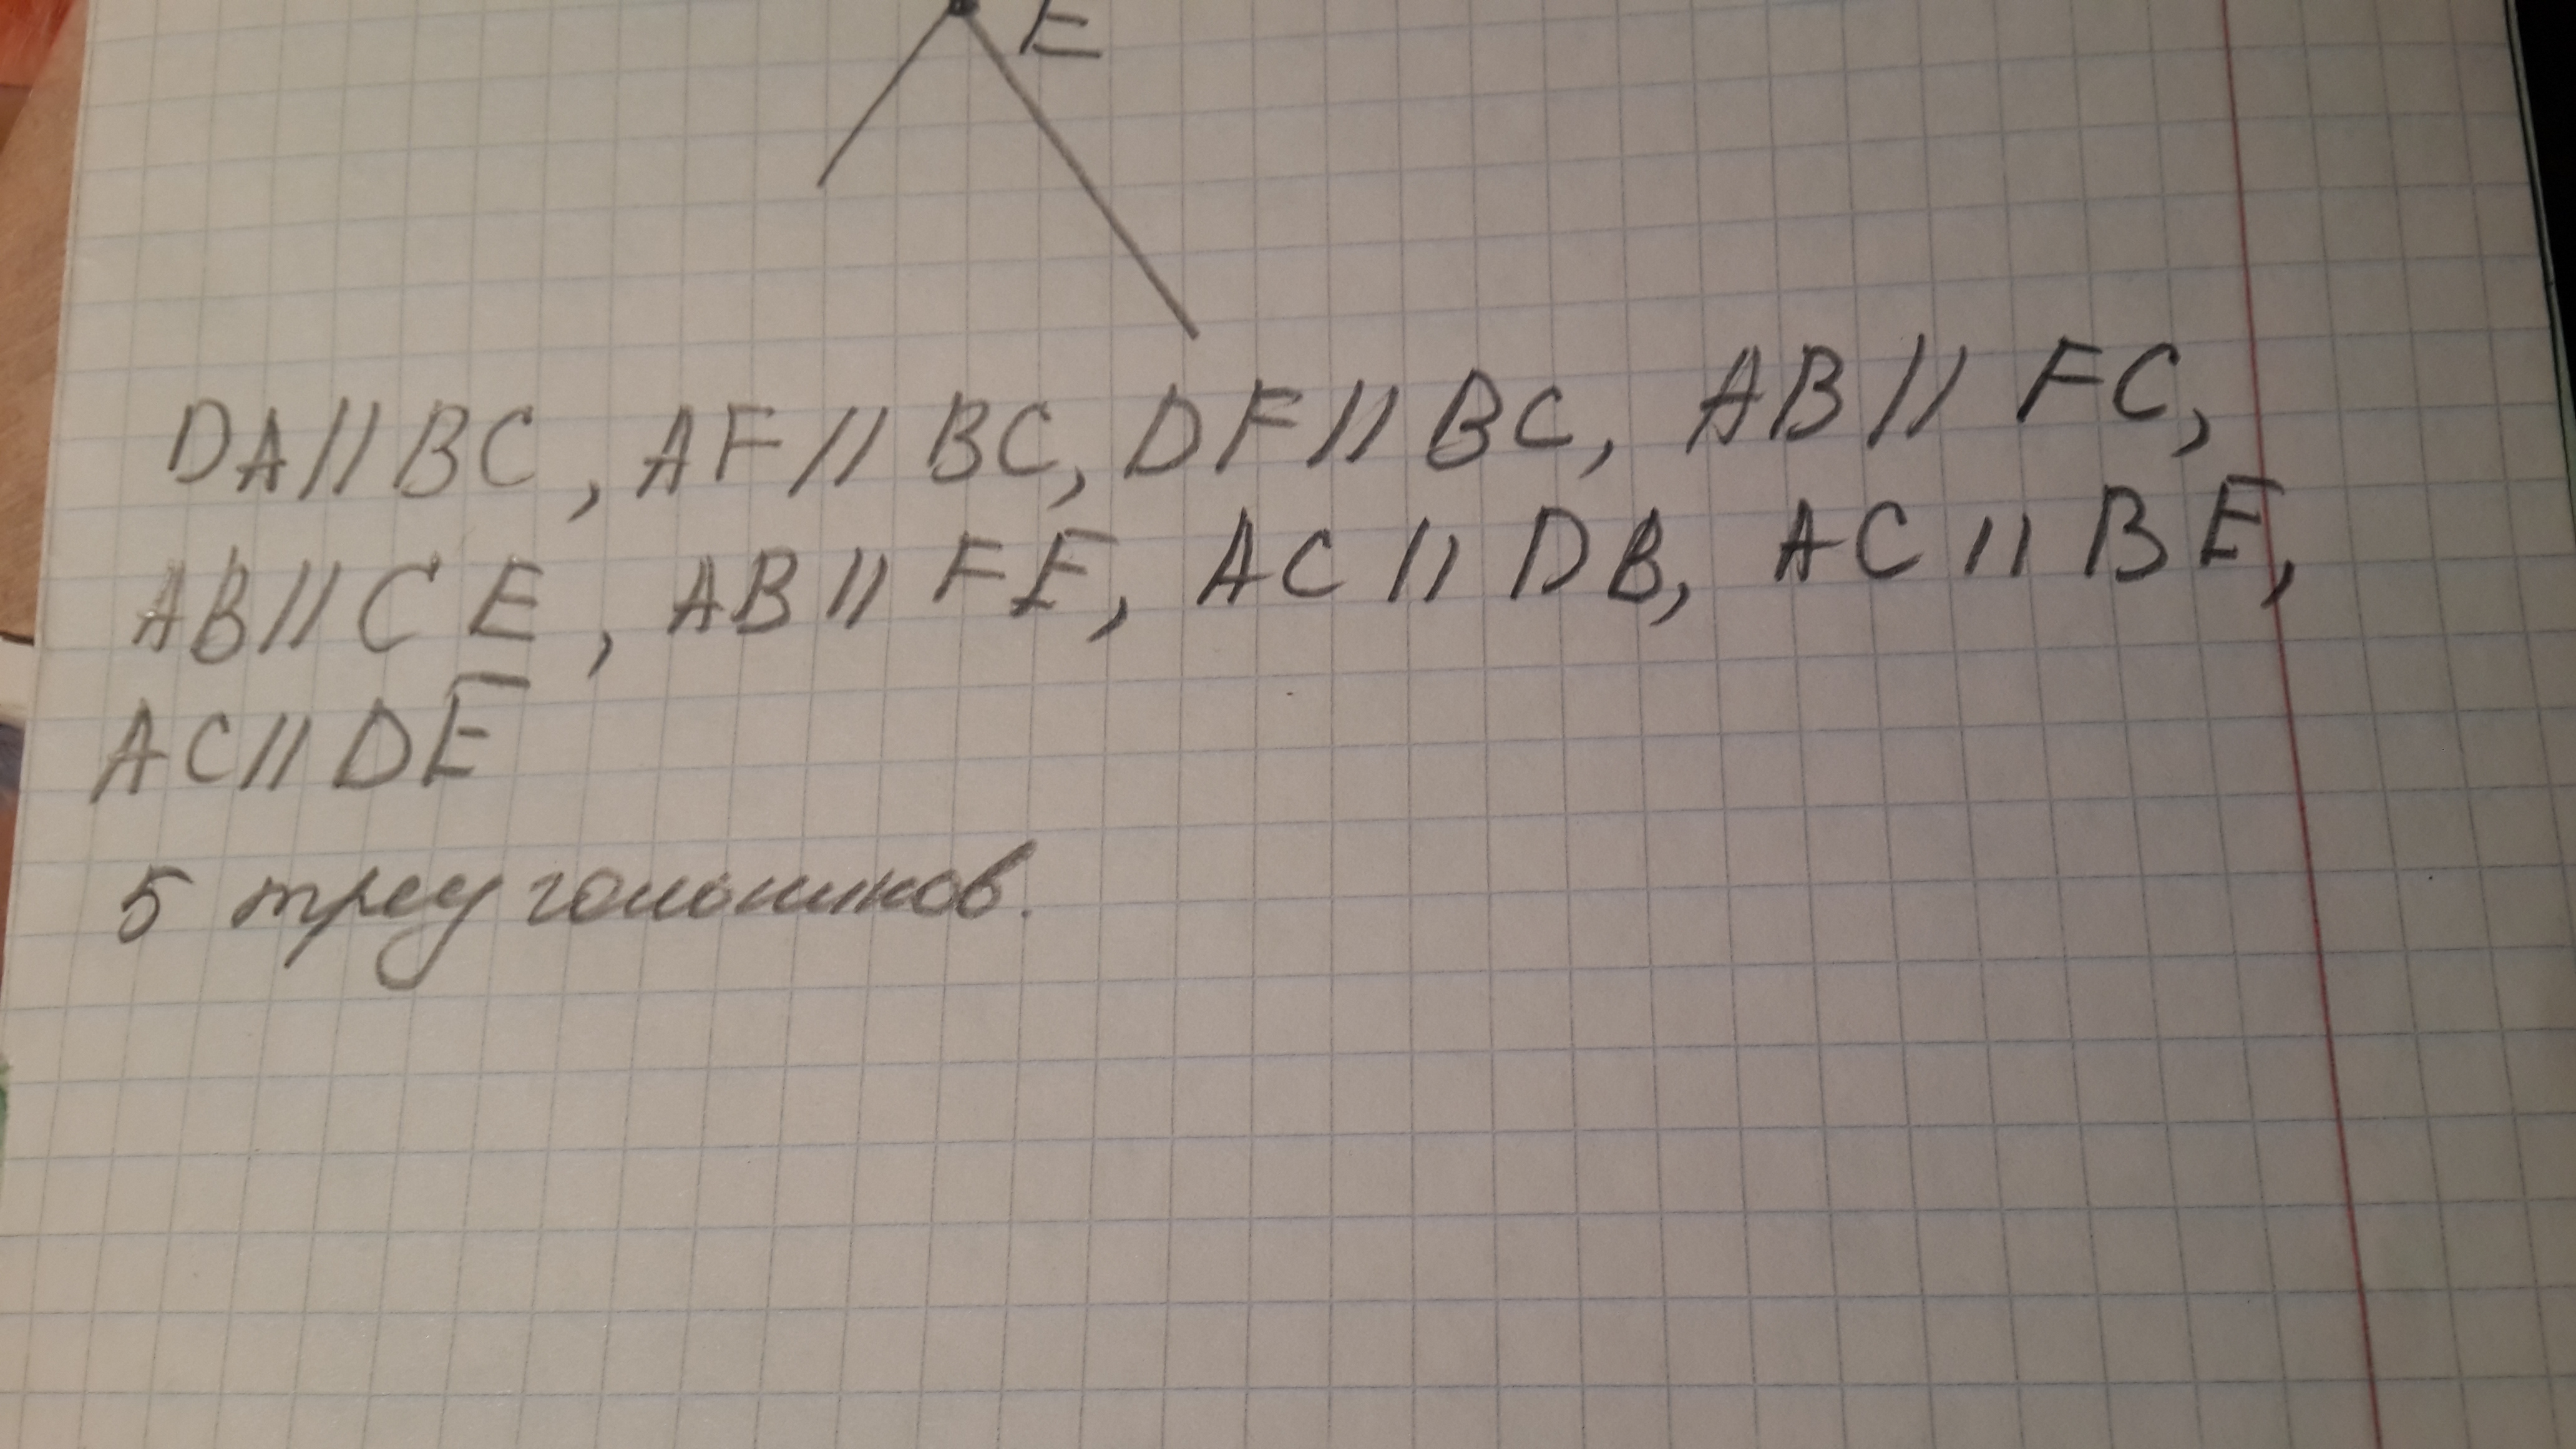 E
DA//BC, AF//BC, DF//BC, AB//FC,
AB//CE, AB//FE, AC//DB, AC//BE,
AC//DE
5 треугольников.